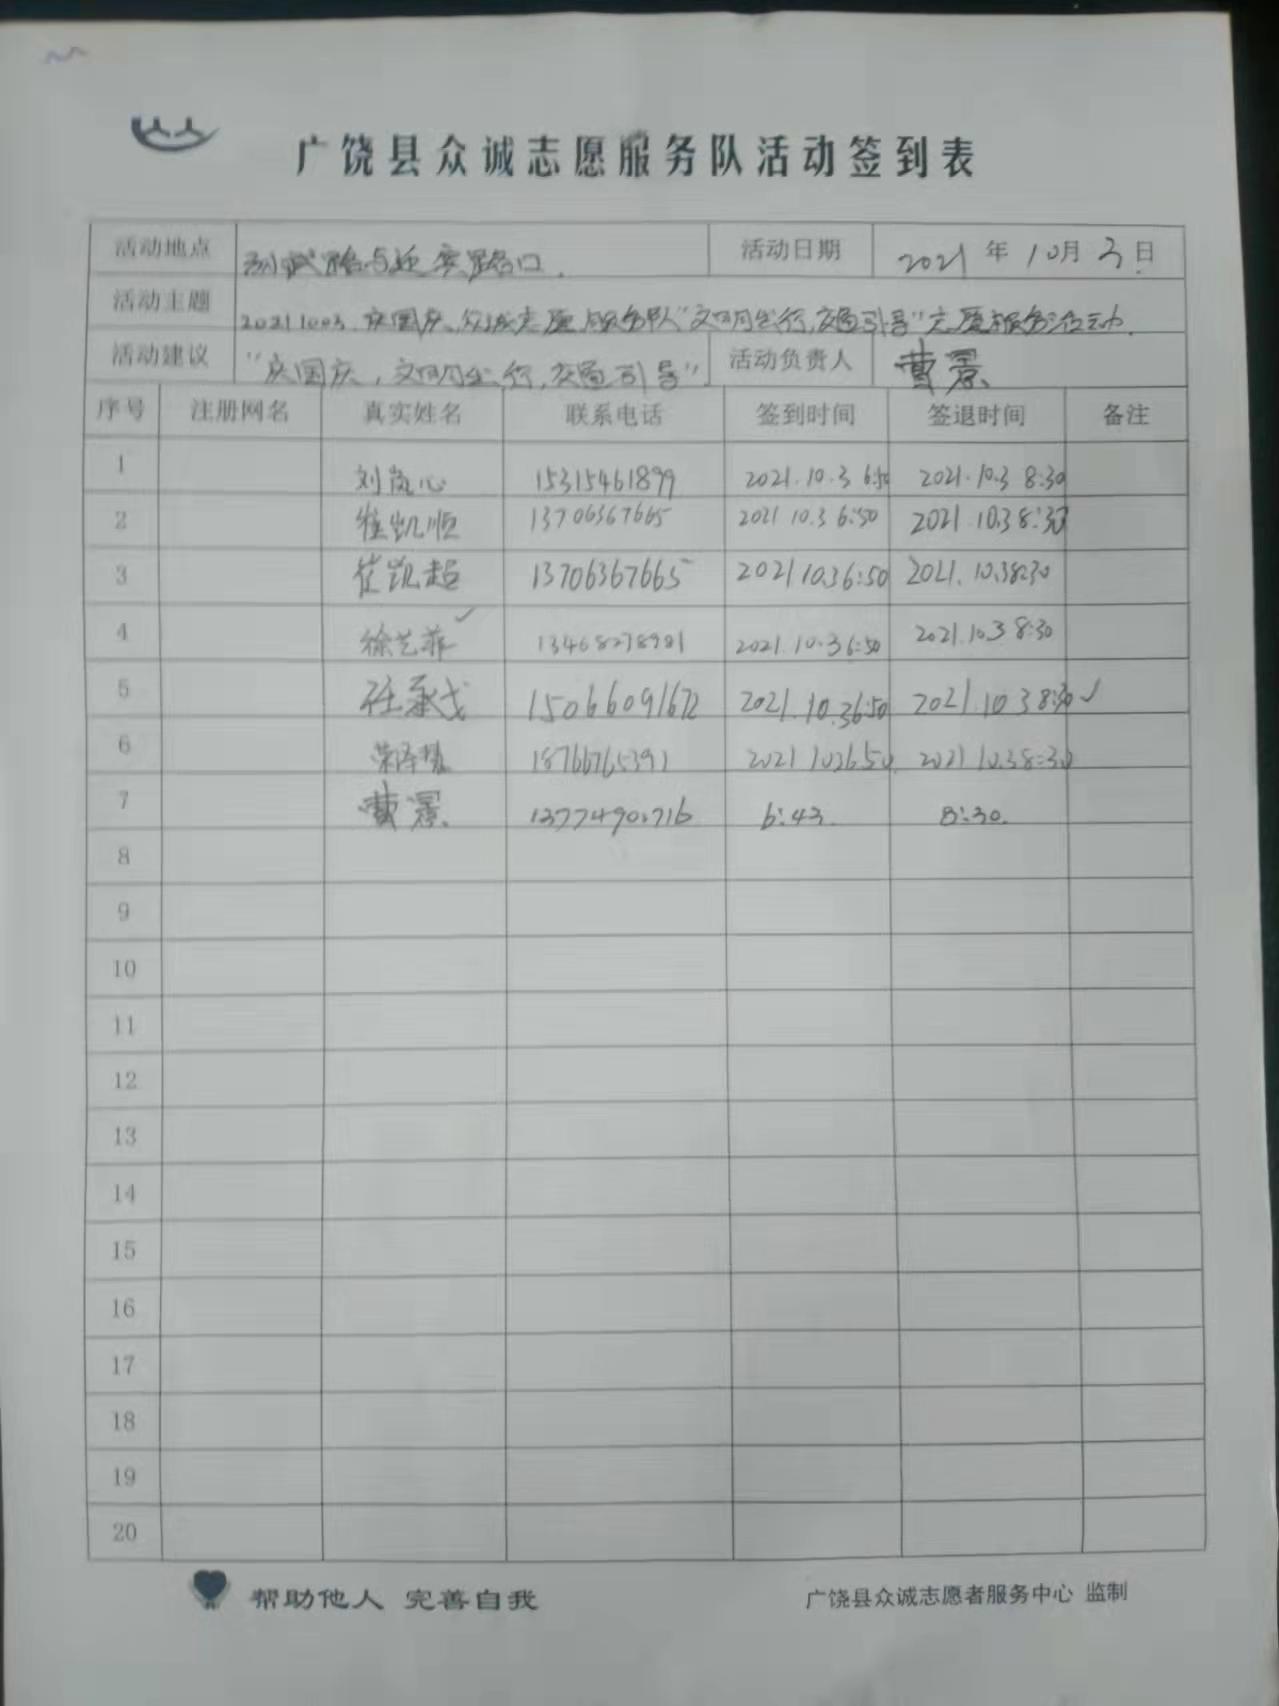 广饶县众诚志愿服务队活动签到表
活动地点 孙武路与迎宾路口. 活动日期 2021 年 10 月 3 日
活动主题 20211003. 庆国庆, 众诚志愿服务队"文明出行,交通引导"志愿服务活动.
活动建议 "庆国庆, 文明出行, 交通引导" 活动负责人 曹景
序号 注册网名 真实姓名 联系电话 签到时间 签退时间 备注
1 刘岚心 15315461899 2021.10.3 6:50 2021.10.3 8:30
2 崔凯顺 13706367665 2021 10.3 6:50 2021 10.3 8:30
3 崔凯超 13706367665 2021 10.3 6:50 2021. 10.3 8:30
4 徐艺菲 13468278981 2021.10.3 6:50 2021.10.3 8:30
5 任承戈 15066091672 2021.10.3 6:50 2021.10 3 8:30
6 18766765391 2021 10.2 6 50 2021 10.3 8:30
7 曹景 6:43. 8:30.
8
9
10
11
12
13
14
15
16
17
18
19
20
帮助他人 完善自我 广饶县众诚志愿者服务中心 监制